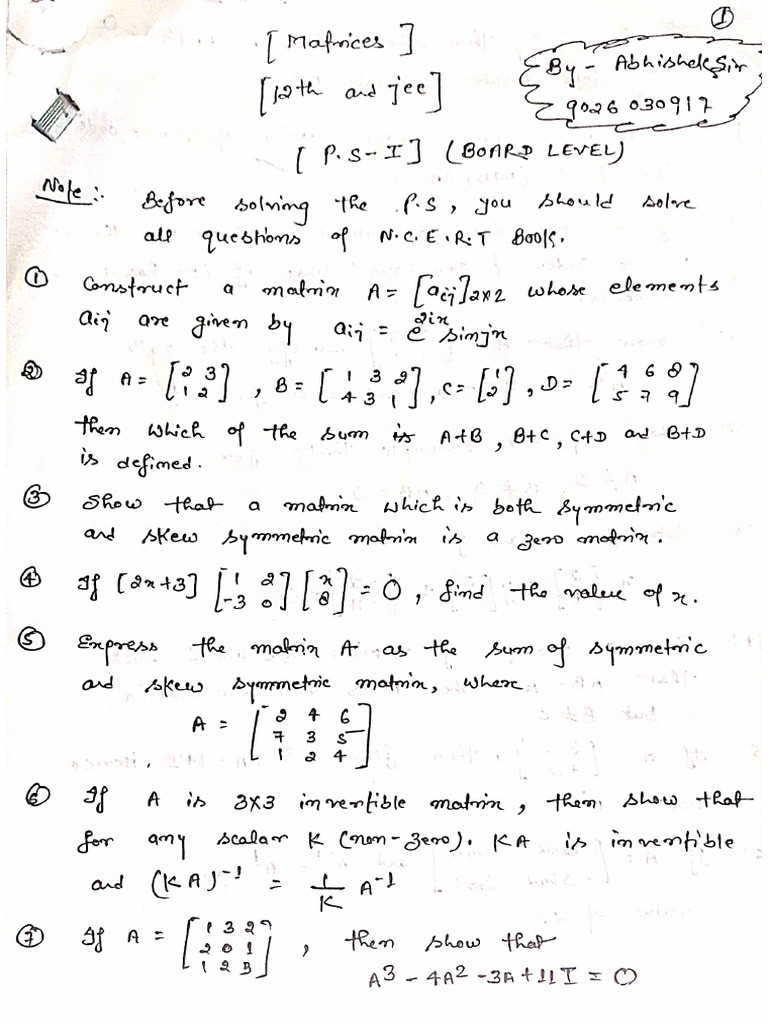 ①
[ Matrices ]
[12th and jee]
By - Abhishek Sir
9026 030917
[ P.S-I] (BOARD LEVEL)
Note:- Before solving the P.S, you should solve
all questions of N.C.E.R.T Book.
① Construct a matrix A = [aij]2x2 whose elements
aij are given by aij = e^2ix sinjx
② If A = [2 3 1 2], B = [1 3 2 4 3 1], C = [1 2], D = [4 6 8 5 7 9]
then which of the sum is A+B, B+C, C+D and B+D
is defined.
③ Show that a matrix which is both symmetric
and skew symmetric matrix is a zero matrix.
④ If [2x+3] [1 2 -3 0] [x 8] = 0, find the value of x.
⑤ Express the matrix A as the sum of symmetric
and skew symmetric matrix, where
A = [2 4 6
7 3 5
1 2 4]
⑥ If A is 3x3 invertible matrix, then show that
for any scalar K (non-zero). KA is invertible
and (KA)^-1 = 1/K A^-1
⑦ If A = [1 3 2 2 0 1 1 2 3], then show that
A^3 - 4A^2 - 3A + 11I = 0